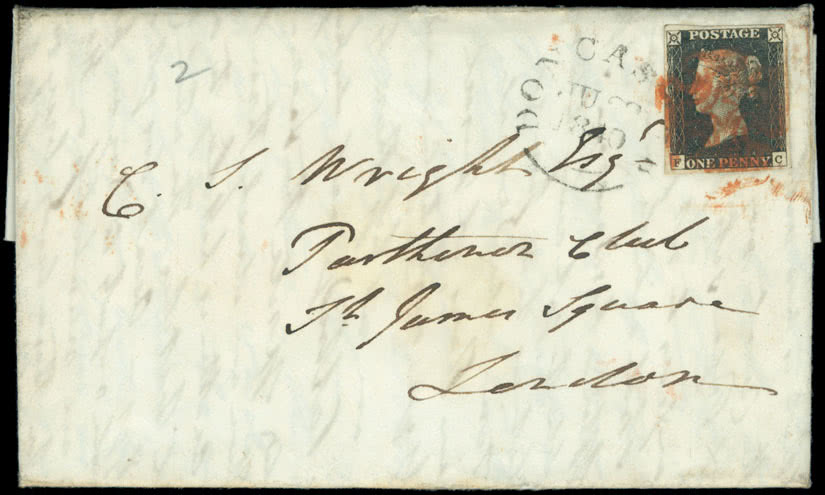 2
DONCAS
JU
1840
POSTAGE
F ONE PENNY C
C. S. Wright Esqr
Parthenon Club
St. James Square
London